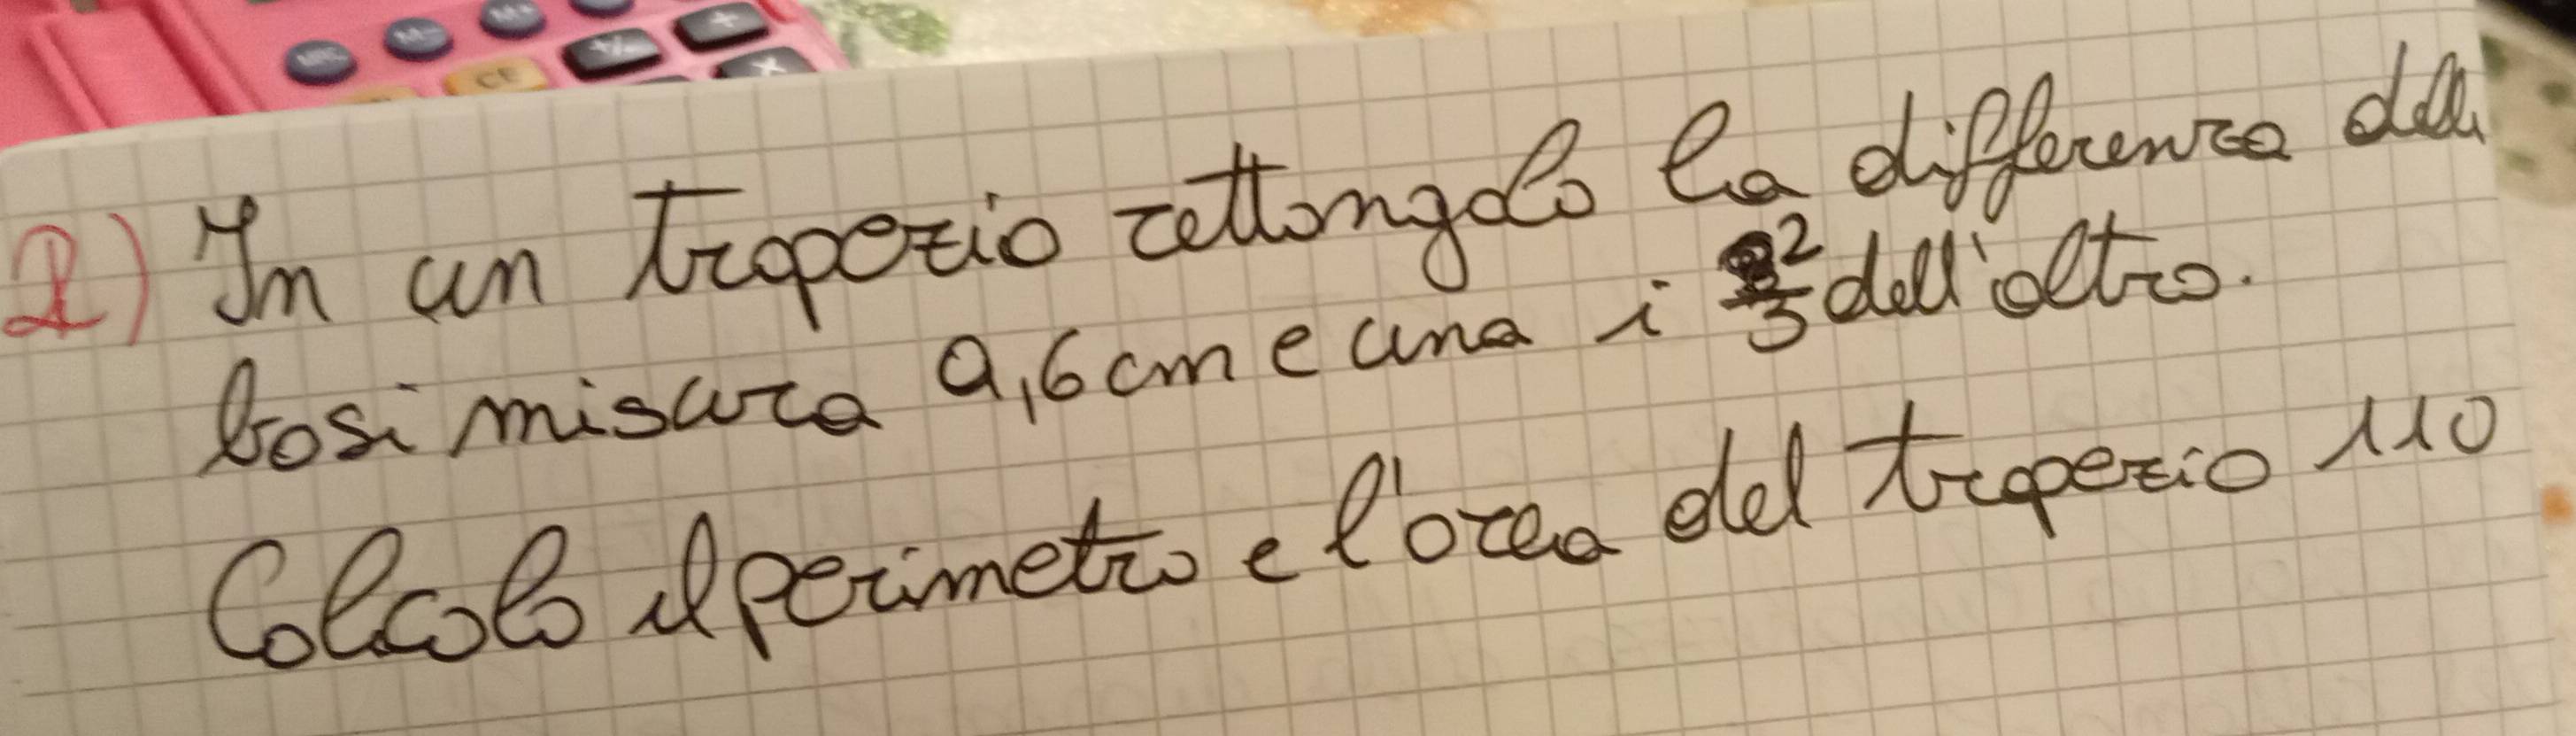 MRC M- M+
CE +/- +
×
2) In un trapezio rettangolo la differenza delle
basi misura 9,6 cm e una i 2/3 dell'altro.
Calcolo il perimetro e l'area del trapezio 110